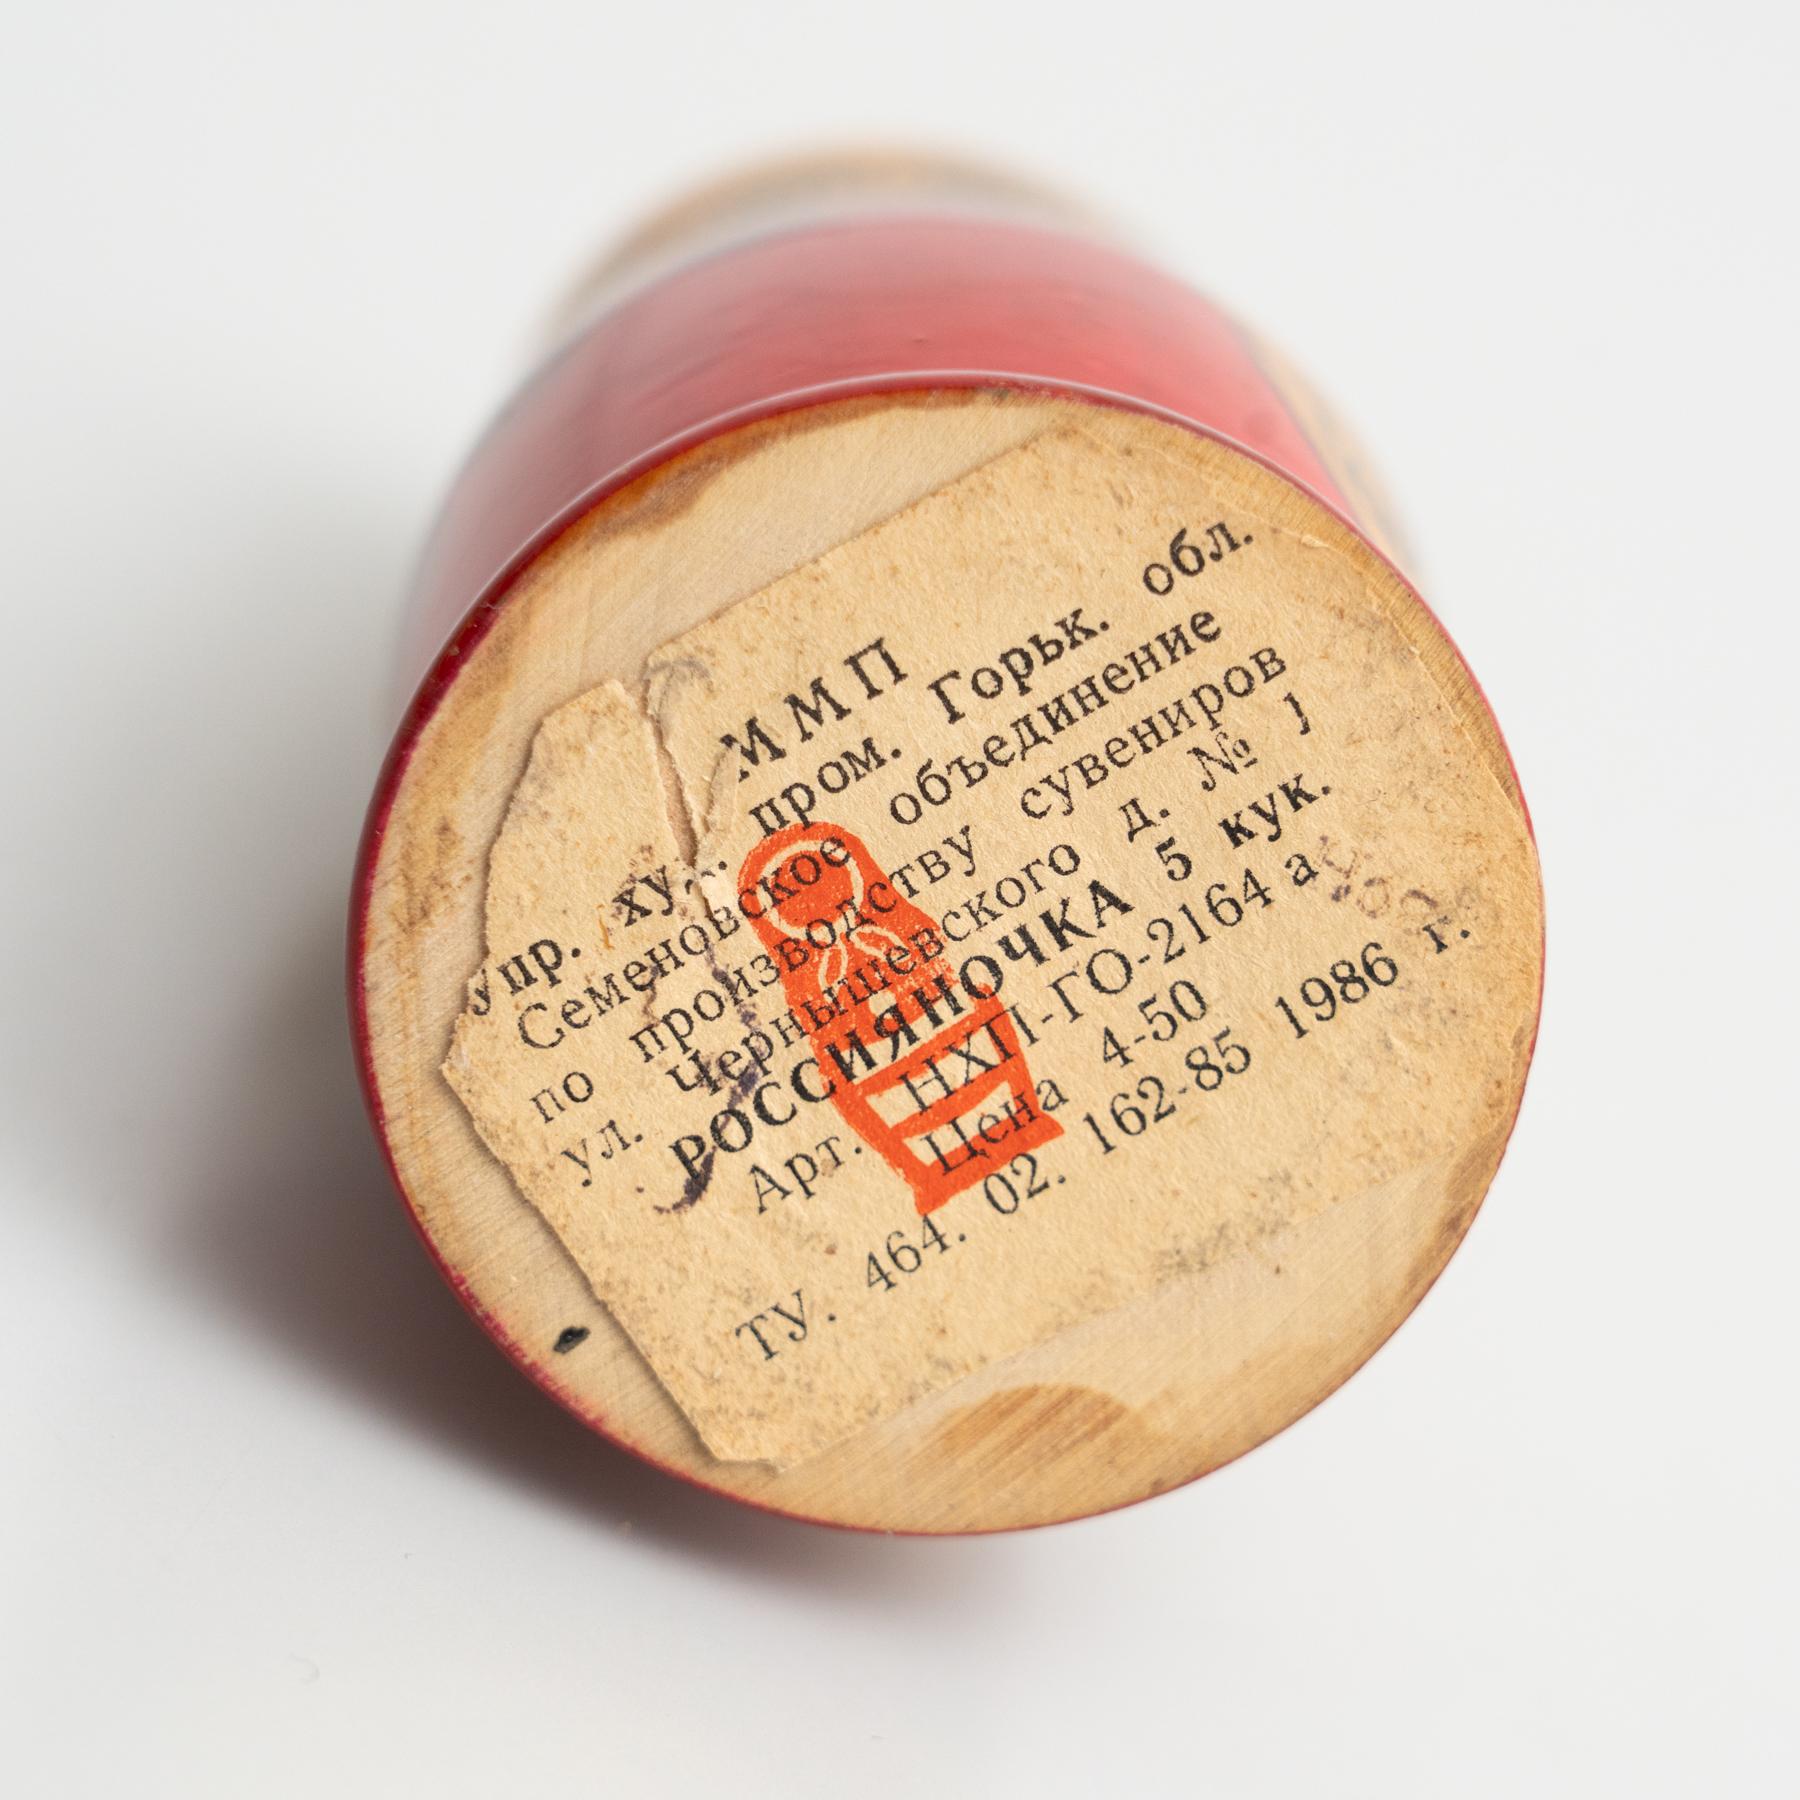 ММП
Упр. худ. пром. Горьк. обл.
Семеновское объединение
по производству сувениров
ул. Чернышевского д. № 1
РОССИЯНОЧКА 5 кук.
Арт. НХП-ГО-2164 а
Цена 4-50
ТУ. 464. 02. 162-85 1986 г.